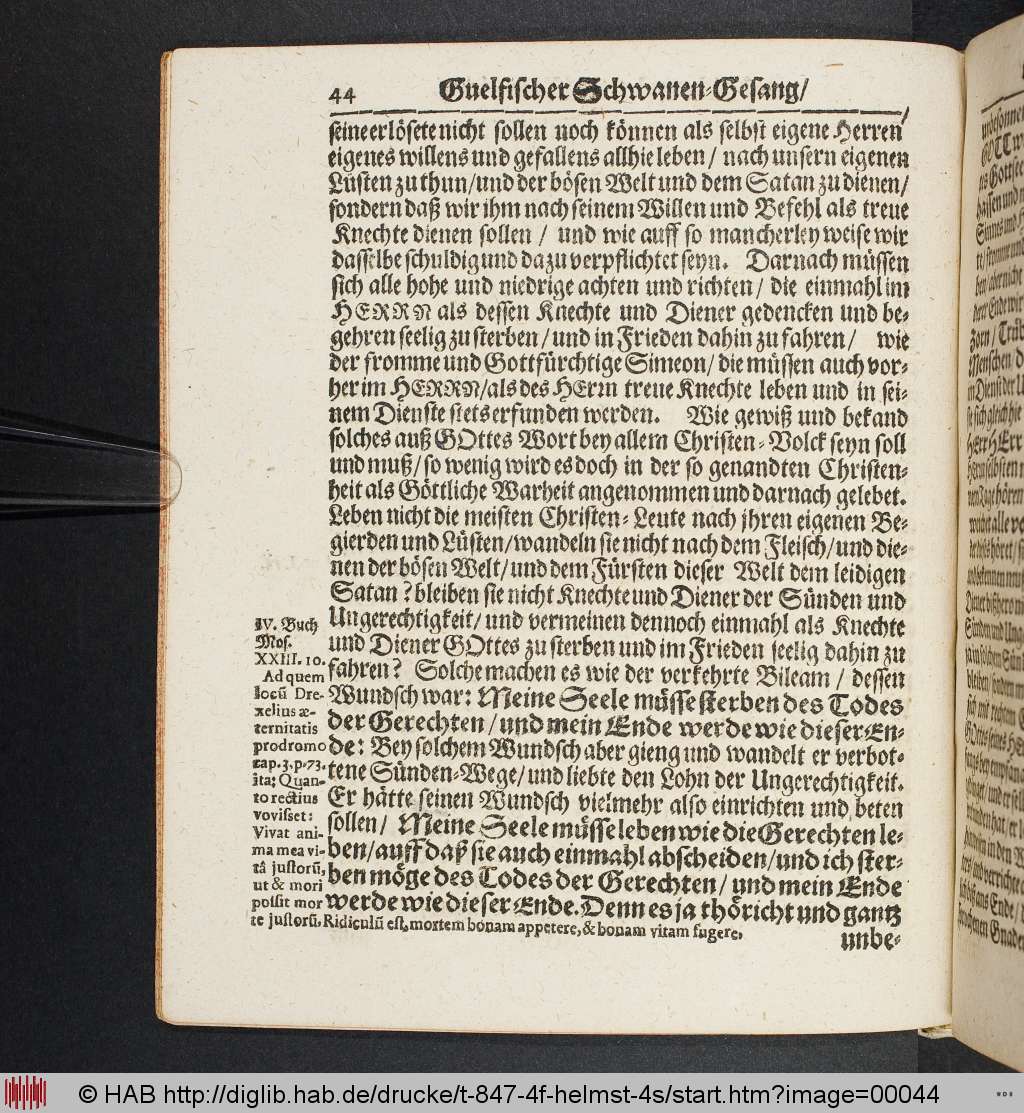 44 Guelfischer Schwanen-Gesang/
seine erlösete nicht sollen noch können als selbst eigene Herren
eigenes willens und gefallens allhie leben / nach unsern eigenen
Lüsten zu thun/und der bösen Welt und dem Satan zu dienen/
sondern daß wir ihm nach seinem Willen und Befehl als treue
Knechte dienen sollen / und wie auff so mancherley weise wir
dasselbe schuldig und dazu verpflichtet seyn. Darnach müssen
sich alle hohe und niedrige achten und richten/ die einmahl im
HERRN als dessen Knechte und Diener gedencken und be-
gehren seelig zu sterben/und in Frieden dahin zu fahren/ wie
der fromme und Gottfürchtige Simeon/die müssen auch vor-
her im HERRN/als des HErrn treue Knechte leben und in sei-
nem Dienste stets erfunden werden. Wie gewiß und bekand
solches auß GOttes Wort bey allem Christen-Volck seyn soll
und muß/so wenig wird es doch in der so genandten Christen-
heit als Göttliche Warheit angenommen und darnach gelebet.
Leben nicht die meisten Christen-Leute nach jhren eigenen Be-
gierden und Lüsten/wandeln sie nicht nach dem Fleisch/und die-
nen der bösen Welt/und dem Fürsten dieser Welt dem leidigen
Satan? bleiben sie nicht Knechte und Diener der Sünden und
Ungerechtigkeit/und vermeinen dennoch einmahl als Knechte
und Diener GOttes zu sterben und im Frieden seelig dahin zu
fahren? Solche machen es wie der verkehrte Bileam/ dessen
Wundsch war: Meine Seele müsse sterben des Todes
der Gerechten/und mein Ende werde wie dieser En-
de: Bey solchem Wundsch aber gieng und wandelt er verbot-
tene Sünden-Wege/und liebte den Lohn der Ungerechtigkeit.
Er hätte seinen Wundsch vielmehr also einrichten und beten
sollen/ Meine Seele müsse leben wie die Gerechten le-
ben/auff daß sie auch einmahl abscheiden/und ich ster-
ben möge des Todes der Gerechten/und mein Ende
werde wie dieser Ende. Denn es ja thöricht und gantz
unbe-
IV. Buch
Mos.
XXIII. 10.
Ad quem
locū Dre-
xelius æ-
ternitatis
prodromo
cap. 3. p. 73.
ita: Quan-
to rectius
vovisset:
Vivat ani-
ma mea vi-
tâ justorū,
ut & mori
possit mor
te justorū. Ridiculū est, mortem bonam appetere, & bonam vitam fugere.
© HAB http://diglib.hab.de/drucke/t-847-4f-helmst-4s/start.htm?image=00044